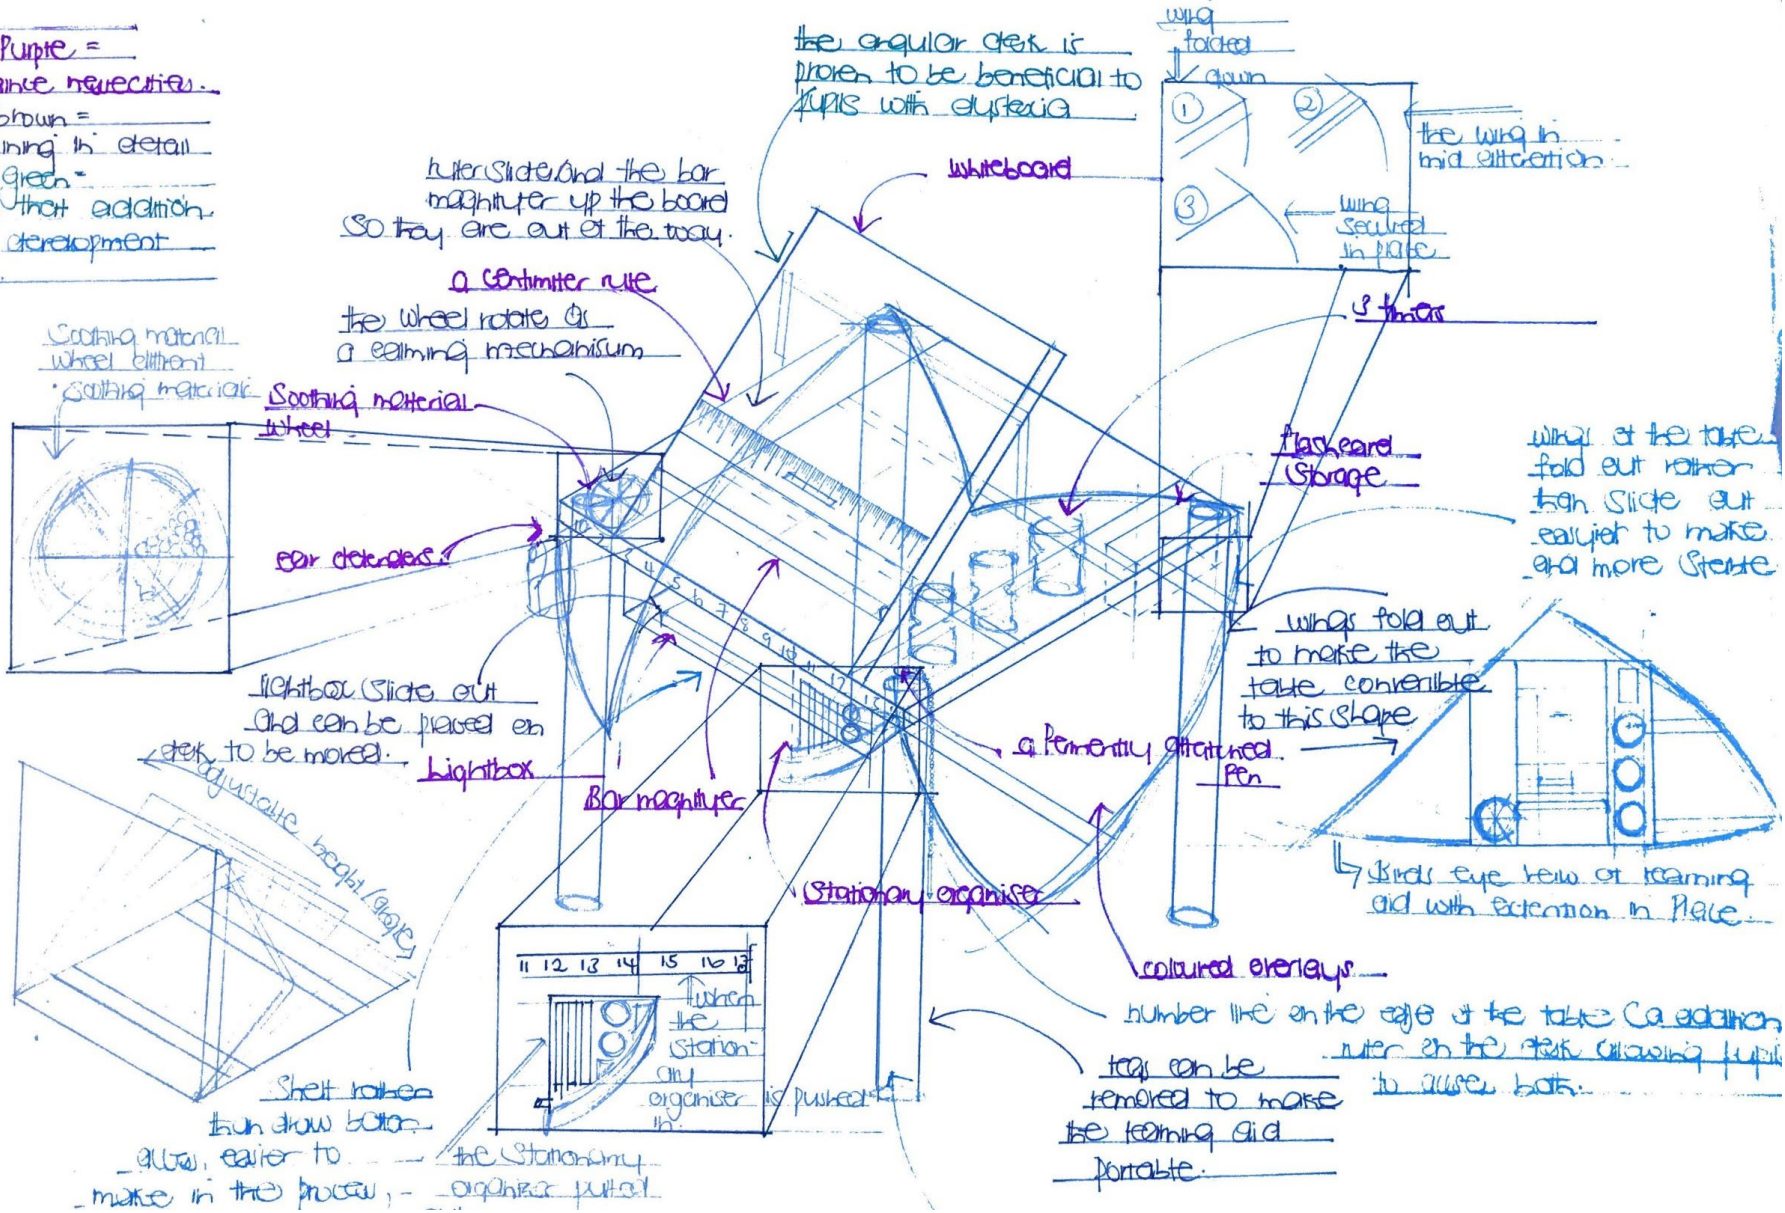 Purple =
necceities.
brown =
ining in detail
green =
that addition
development
the angular desk is
proven to be beneficial to
pupils with dyslexia
wing
folded
down
1
2
3
the wing in
mid
wing
secured
in place
whiteboard
ruler slide and the bar
magnifyer up the board
so they are out of the way.
a centimiter rule
the wheel rotate as
a calming mechanisum
Soothing material
wheel diffrent
• Soothing material
Soothing material
wheel
ear defenders
3 thiers
flashcard
Storage
wings of the table
fold out rather
than slide out
easyier to make
and more sterble
wings fold out
to make the
table converible
to this shape
10 4 5 6 7 8 9 10 11 12 13
lightbox slide out
and can be placed on
desk to be moved.
Lightbox
Bar magnifyer
a Permently attatched
Pen
adjustable height/angle
Stationary organiser
Birds eye veiw of learning
aid with extention in place
coloured overlays
11 12 13 14 15 16 17
when
the
station-
ary
organiser is pushed
in.
number line on the edge of the table (a addition
ruler on the desk allowing pupils
to both.
legs can be
removed to make
the learning aid
portable.
Shelf rather
than draw bottom
allows easier to
make in the process,
the Stationary
organiser pulled